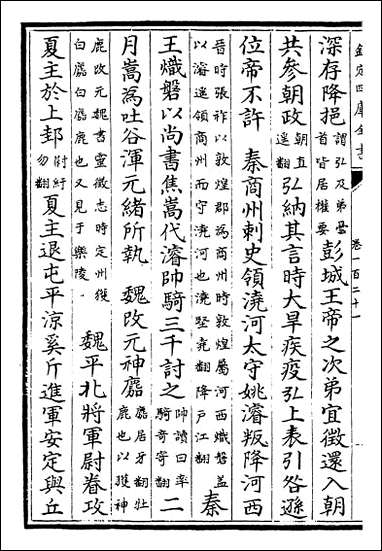 欽定四庫全書
卷一百二十一
深存降挹謂弘及弟曇首皆居權要彭城王帝之次弟宜徵還入朝
共參朝政朝直遥翻弘納其言時大旱疾疫弘上表引咎遜
位帝不許　秦商州刺史領澆河太守姚濬叛降河西
晉時張祚以敦煌郡為商州時敦煌屬河西熾磐盖以濬遥領商州而守澆河也澆堅堯翻降戶江翻　秦
王熾磐以尚書焦嵩代濬帥騎三千討之帥讀曰率騎奇寄翻二
月嵩為吐谷渾元緒所執　魏改元神䴥䴥居牙翻牡鹿也以獲神
鹿改元魏書靈徵志時定州獲白䴥白䴥鹿也又見于樂陵　魏平北將軍尉眷攻
夏主於上邽尉紆勿翻夏主退屯平涼奚斤進軍安定與丘